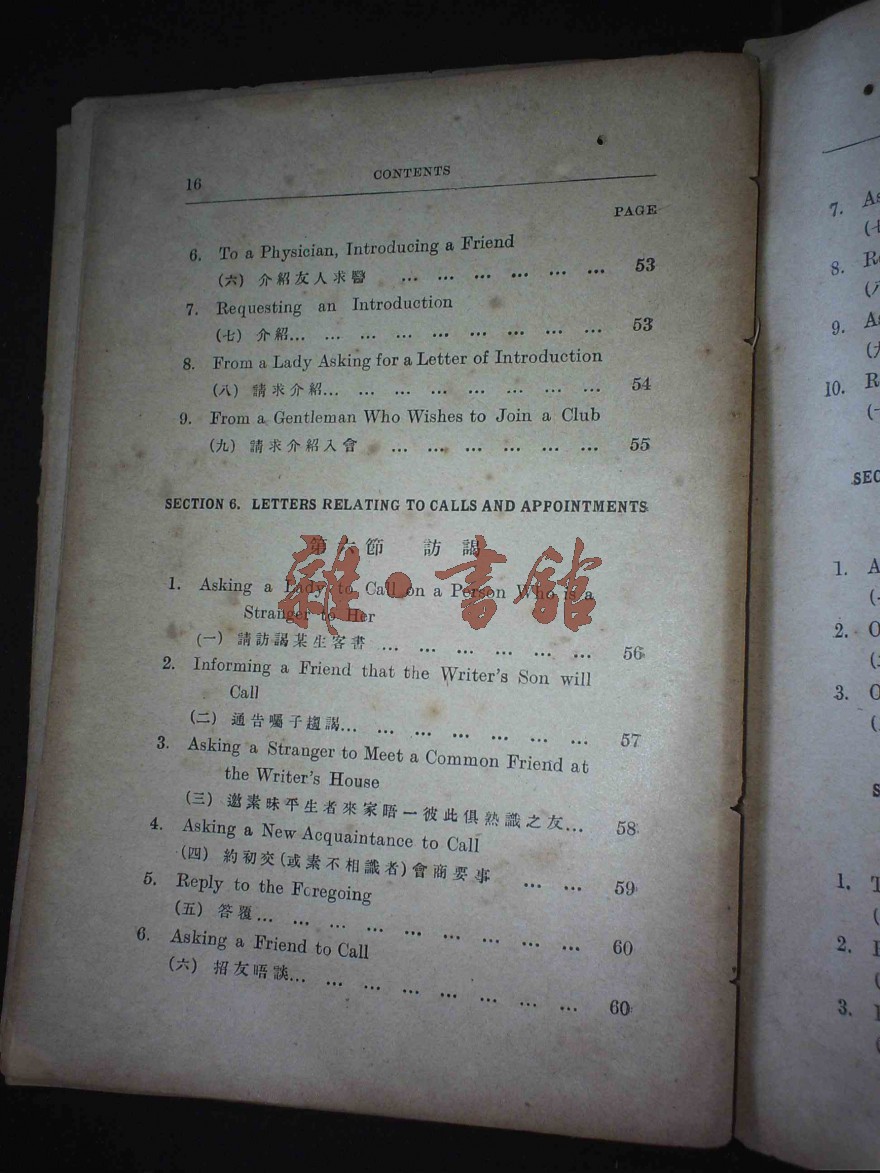 16 CONTENTS
PAGE
6. To a Physician, Introducing a Friend
(六) 介紹友人求醫 ... ... ... ... ... ... 53
7. Requesting an Introduction
(七) 介紹... ... ... ... ... ... ... ... ... 53
8. From a Lady Asking for a Letter of Introduction
(八) 請求介紹... ... ... ... ... ... ... ... 54
9. From a Gentleman Who Wishes to Join a Club
(九) 請求介紹入會 ... ... ... ... ... ... 55
SECTION 6. LETTERS RELATING TO CALLS AND APPOINTMENTS
第六節 訪謁
雜·書館
1. Asking a Lady to Call on a Person Who is a
Stranger to Her
(一) 請訪謁某生客書 ... ... ... ... ... ... 56
2. Informing a Friend that the Writer's Son will
Call
(二) 通告囑子趨謁... ... ... ... ... ... ... 57
3. Asking a Stranger to Meet a Common Friend at
the Writer's House
(三) 邀素昧平生者來家晤一彼此俱熟識之友... 58
4. Asking a New Acquaintance to Call
(四) 約初交(或素不相識者)會商要事 ... ... 59
5. Reply to the Foregoing
(五) 答覆... ... ... ... ... ... ... ... ... 60
6. Asking a Friend to Call
(六) 招友晤談... ... ... ... ... ... ... ... 60
7.
8.
9.
10.
1.
2.
3.
1.
2.
3.